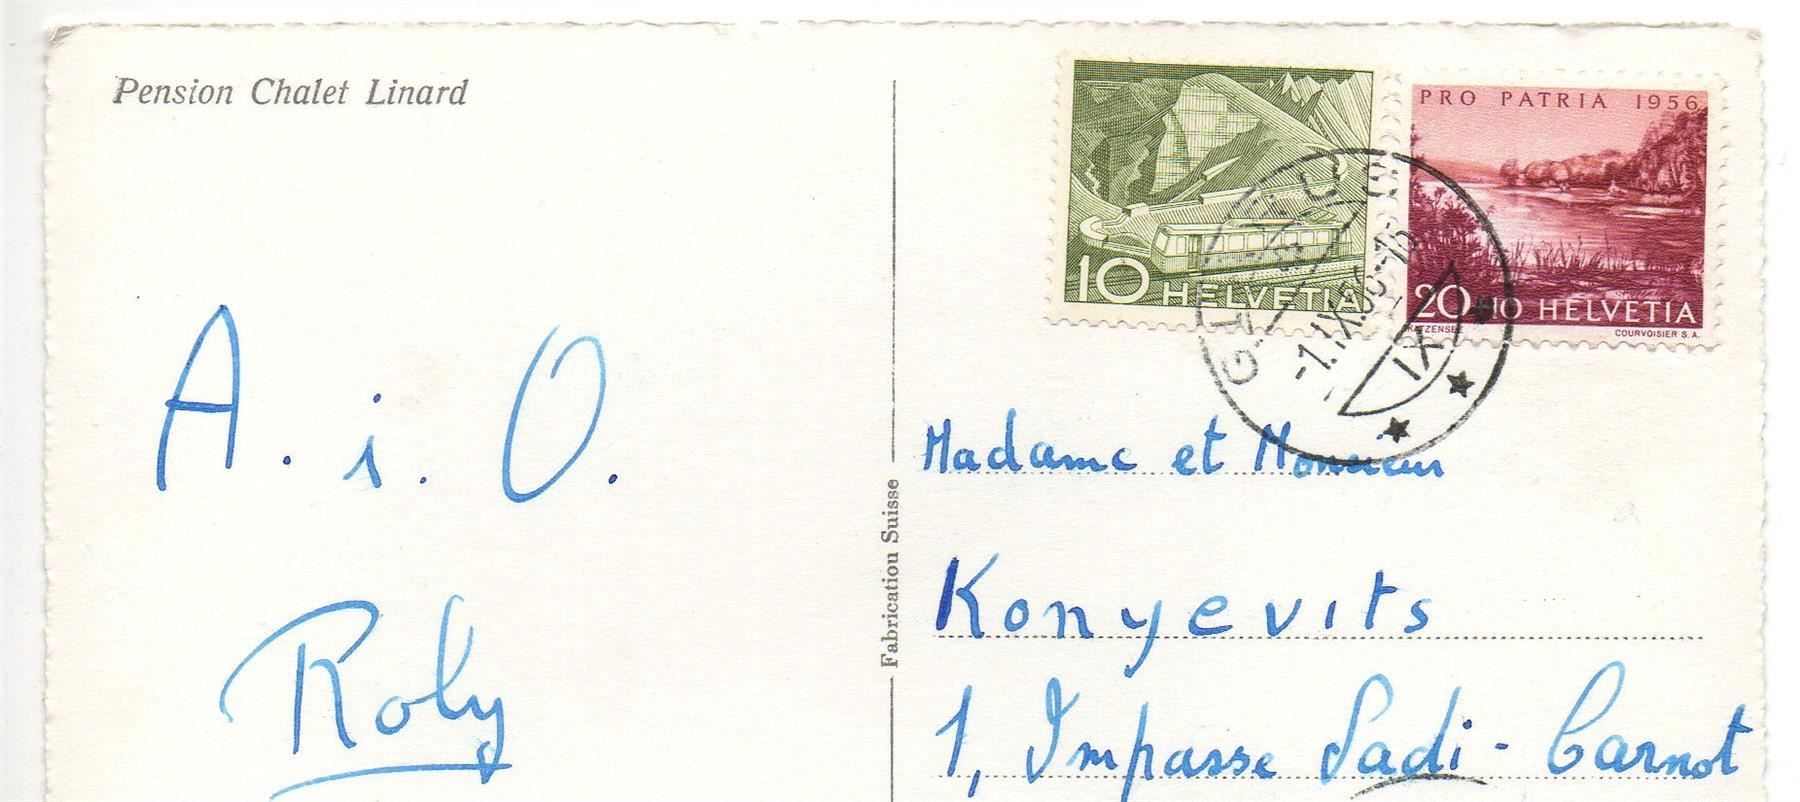 Pension Chalet Linard
PRO PATRIA 1956
10 HELVETIA
20+10 HELVETIA
KATZENSEE
COURVOISIER S.A.
-1.IX.56-16
IX
A. i. O.
Roly
Fabricatiou Suisse
Madame et Monsieur
Konyevits
1, Impasse Sadi-Carnot